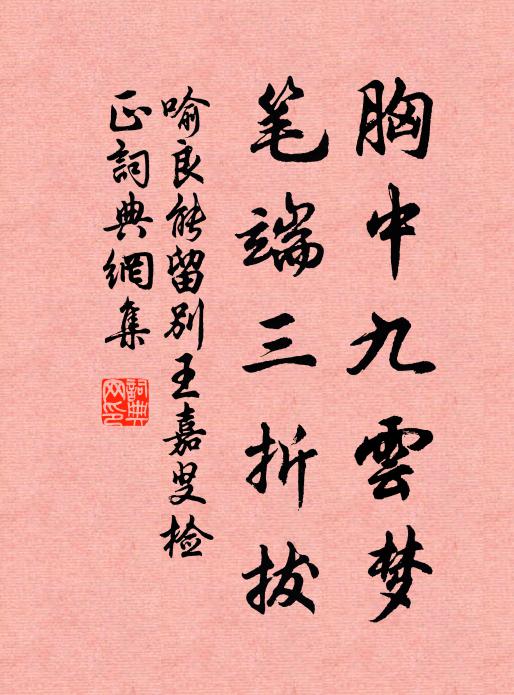 胸中九雲梦
笔端三折拔
喻良能留别王嘉叟检
正詞典網集
詞典网印